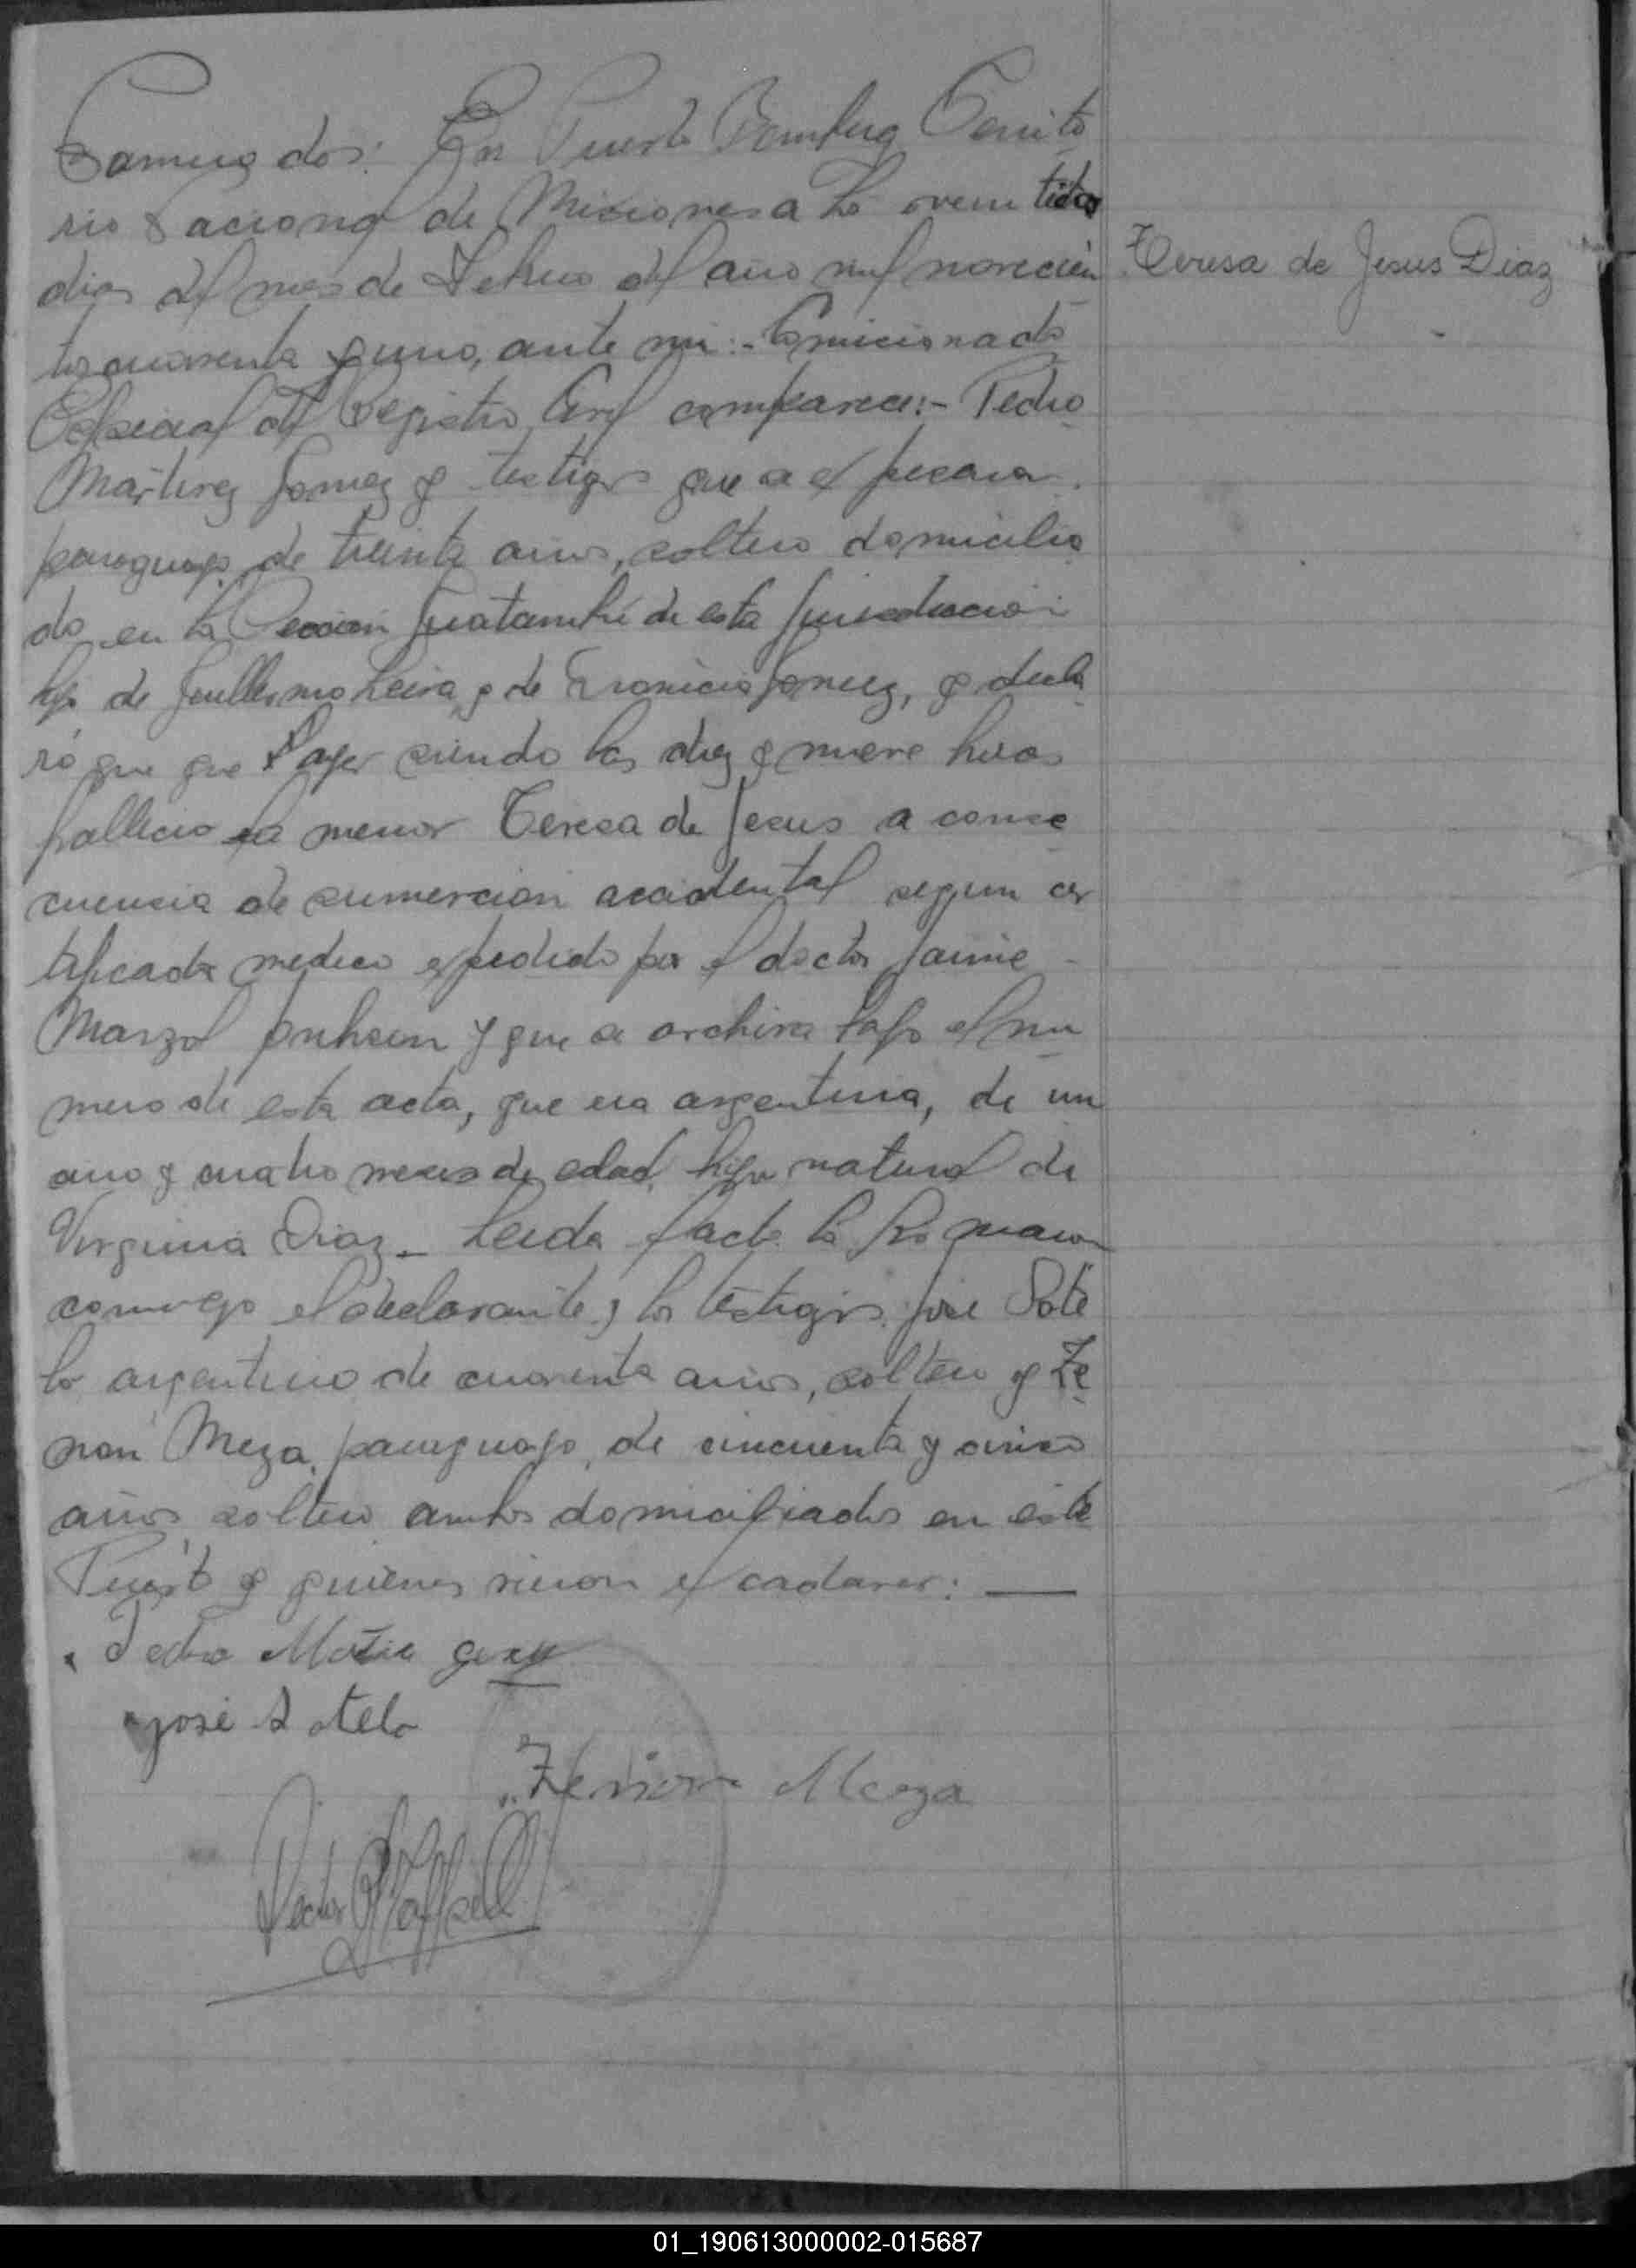 Numero dos: En Puerto Bemberg Territo
rio Nacional de Misiones a los veintidos
dias del mes de Febrero del año mil novecien
tos cuarenta y uno, ante mi:- Comicionado
Especial del Registro Civil comparece:- Pedro
Martirez Gomez y testigos que a el
paraguayo, de treinta años, soltero domicilia
do en la Sección Guatambú de esta jurisdiccion
hijo de Guillermo Leiva y de Gomez, y decla
ró que que ayer siendo las diez y nueve horas
fallecio la menor Teresa de Jesus a conse
cuencia de sumercion accidental segun cer
tificado medico expedido por el doctor Jaime
Marzol y que se archiva bajo el nu
mero de esta acta, que era argentina, de un
año y cuatro meses de edad, hija natural de
Virginia Diaz.- Leida el acta la firmaron
conmigo el declarante y los testigos: José Sote
lo argentino de cuarenta años, soltero y Ze
nón Meza, paraguayo, de cincuenta y cinco
años soltero ambos domiciliados en este
Puerto y quienes vieron el cadaver:
Teresa de Jesus Diaz
Pedro
José Sotelo
Zenion Meza
01_190613000002-015687